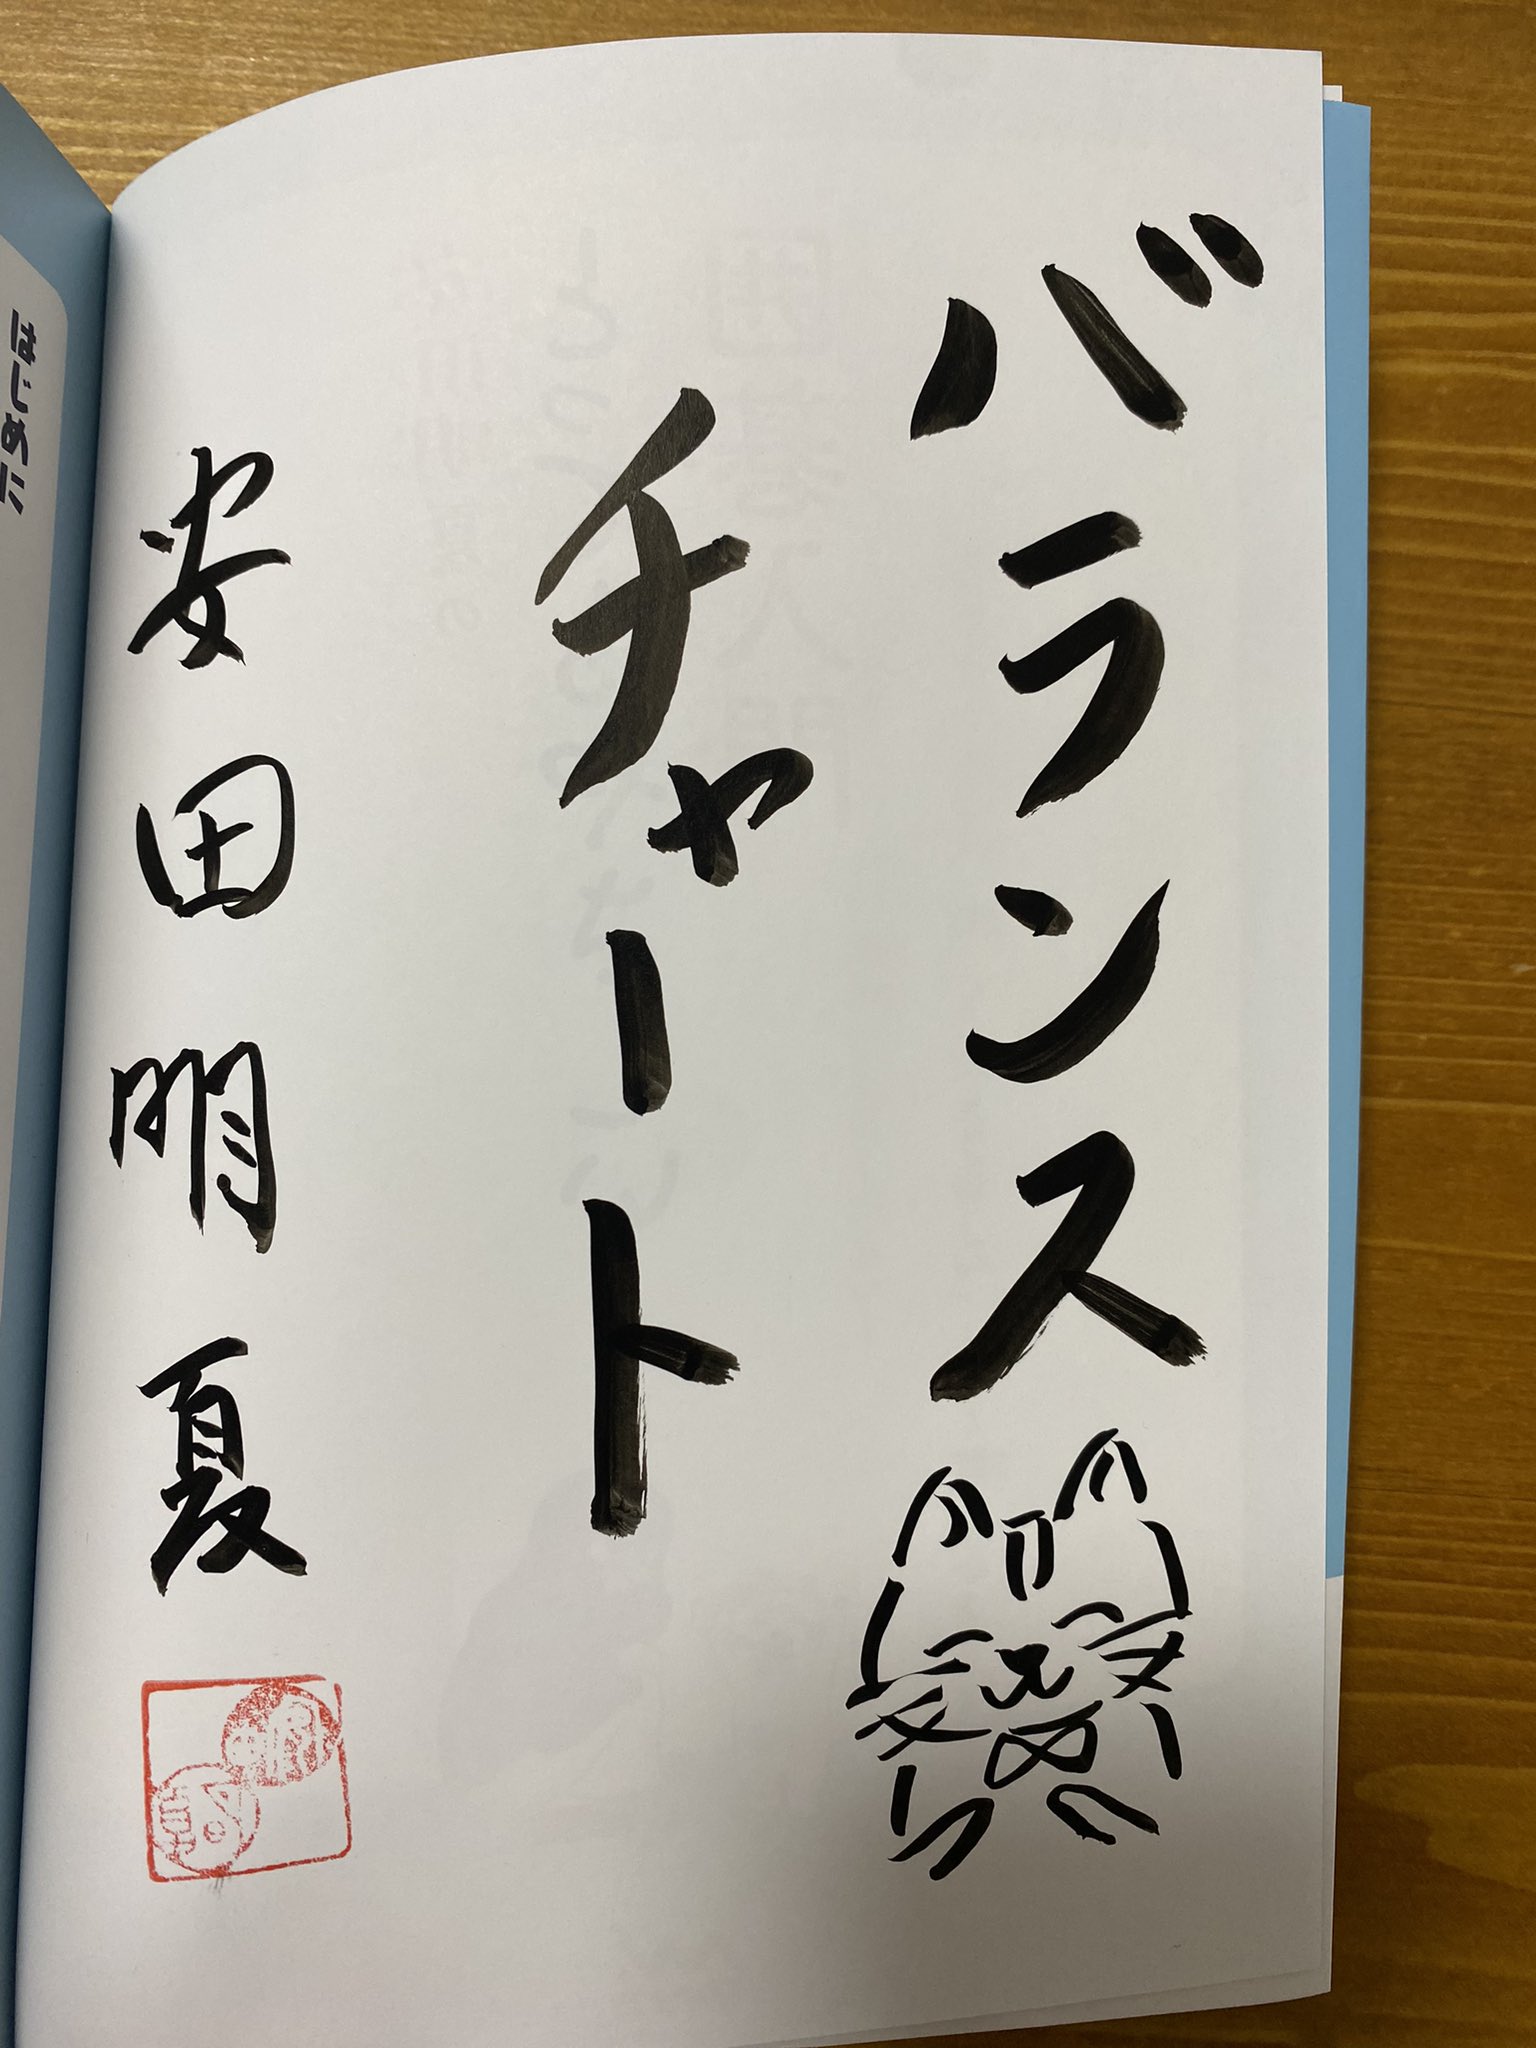 バランス
チャート
安田明夏
はじめに